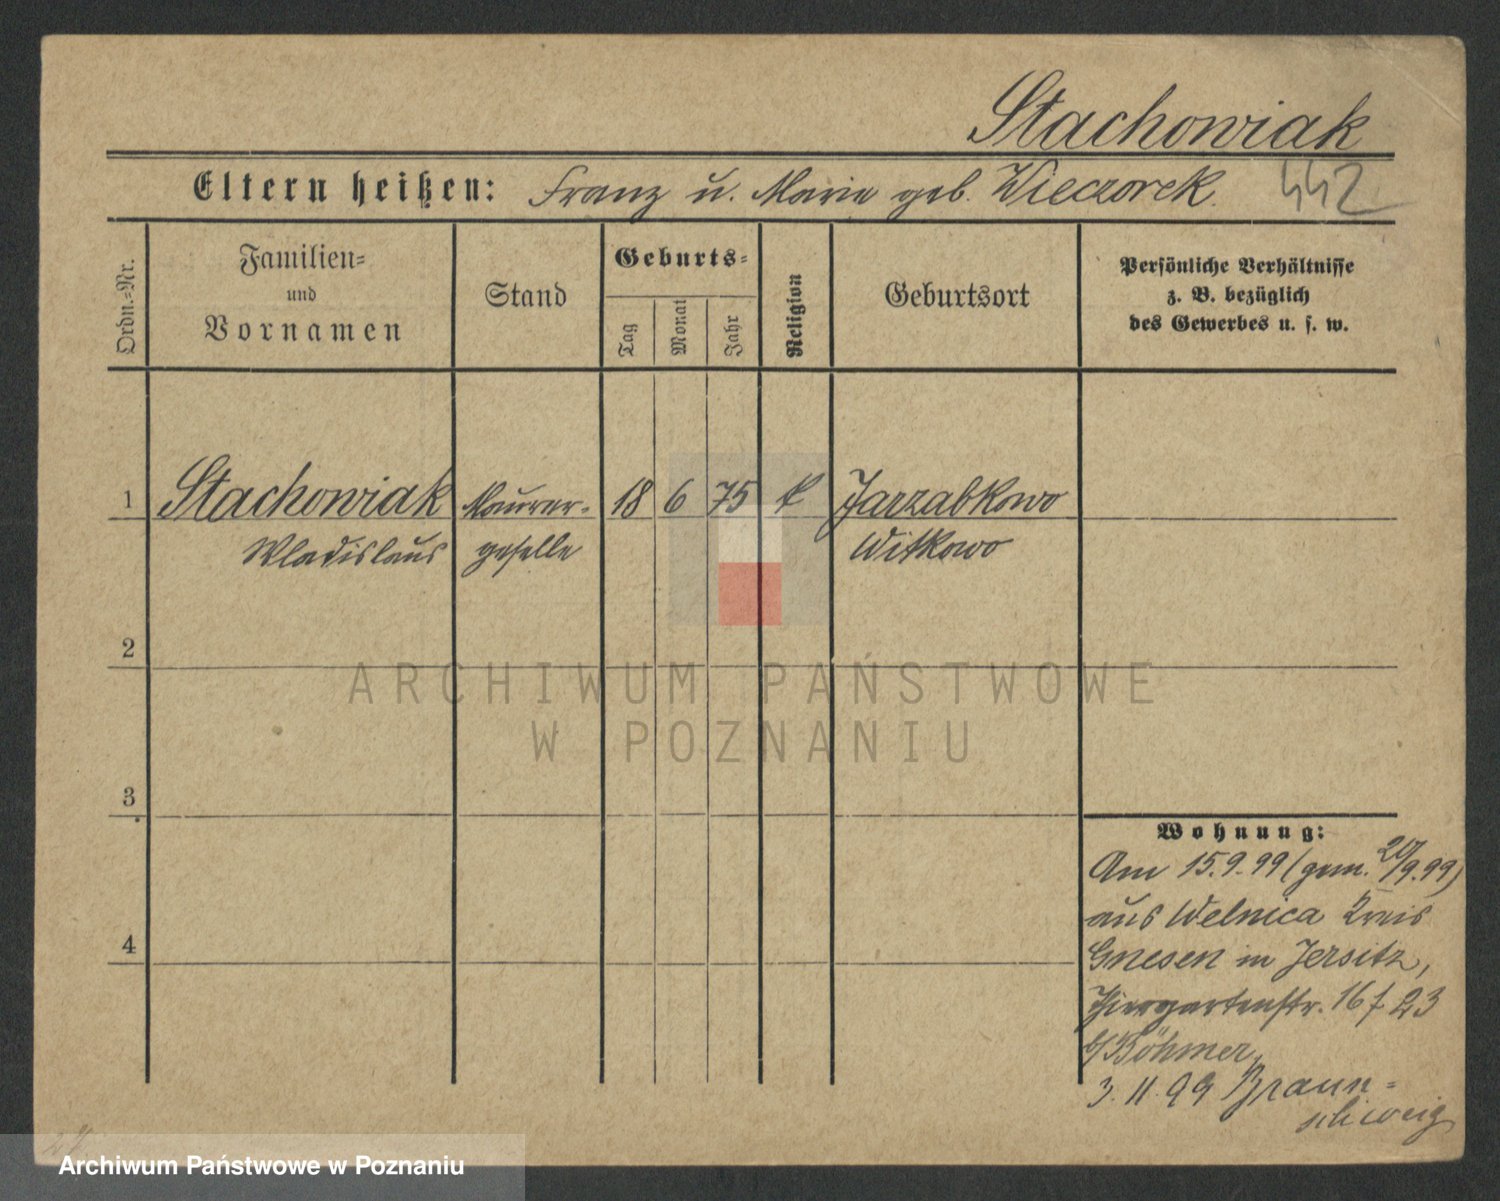 Stachowiak
Eltern heißen: Franz u. Marie geb. Wieczorek. 442
Ordn.=Nr.
Familien=
und
Vornamen
Stand
Geburts=
Tag
Monat
Jahr
Religion
Geburtsort
Persönliche Verhältnisse
z. B. bezüglich
des Gewerbes u. s. w.
1 Stachowiak Maurer- 18 6 75 k Jarzabkowo
Wladislaus geselle Witkowo
2
ARCHIWUM PAŃSTWOWE
W POZNANIU
3
Wohnung:
Am 15.9.99 (gem. 20/9.99)
aus Welnica Kreis
4
Gnesen in Jersitz,
Thiergartenstr. 16 f 23
b/Böhmer
3. 11. 99 Braun=
schweig
Archiwum Państwowe w Poznaniu